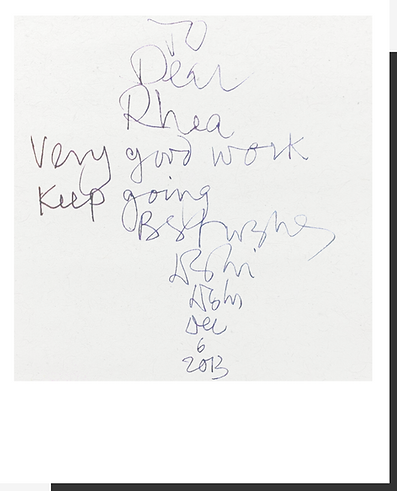 To
Dear
Rhea
Very good work
Keep going
Best wishes
Dec
6
2013